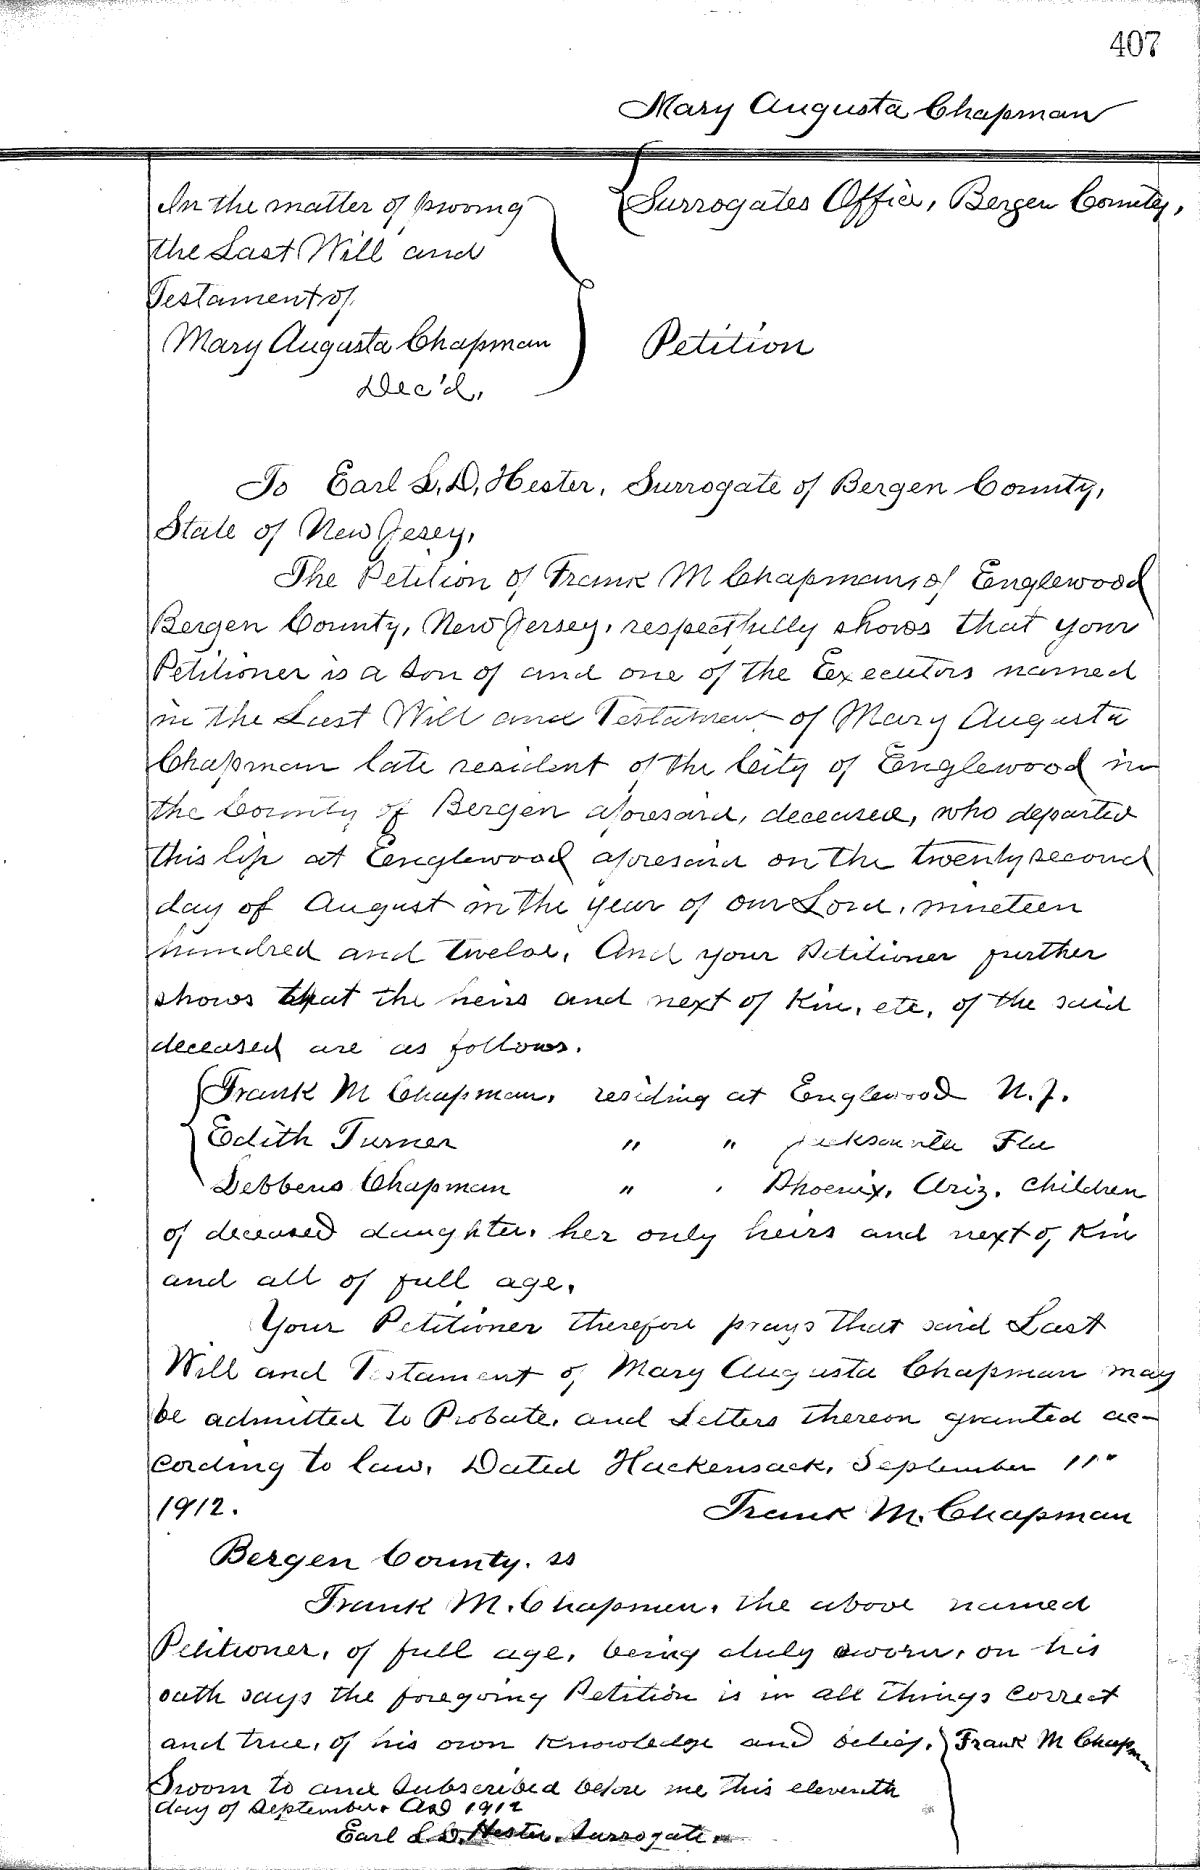 407
Mary Augusta Chapman
In the matter of proving
the Last Will and
Testament of
Mary Augusta Chapman
Dec'd,
Surrogates Office, Bergen County,
Petition
To Earl L, D, Hester, Surrogate of Bergen County,
State of New Jesey,
The Petition of Frank M Chapman, of Englewood
Bergen County, New Jersey, respectfully shows that your
Petitioner is a son of and one of the Executors named
in the Last Will and Testament of Mary Augusta
Chapman late resident of the City of Englewood in
the County of Bergen aforesaid, deceased, who departed
this life at Englewood aforesaid on the twenty second
day of August in the year of our Lord, nineteen
hundred and twelve, And your Petitioner further
shows that the heirs and next of Kin, etc, of the said
deceased are as follows.
Frank M Chapman, residing at Englewood N.J.
Edith Turner " " Jacksonville Fla
Lebbens Chapman " . Phoenix, Ariz, children
of deceased daughter, her only heirs and next of Kin
and all of full age,
Your Petitioner therefore prays that said Last
Will and Testament of Mary Augusta Chapman may
be admitted to Probate, and Letters thereon granted ac-
cording to law, Dated Hackensack, September 11"
1912.
Frank M. Chapman
Bergen County. ss
Frank M. Chapman, the above named
Petitioner, of full age, being duly sworn, on his
oath says the foregoing Petition is in all things correct
and true, of his own knowledge and belief,
Frank M Chapman
Sworn to and subscribed before me this eleventh
day of September, AD 1912
Earl L D, Hester, Surrogate